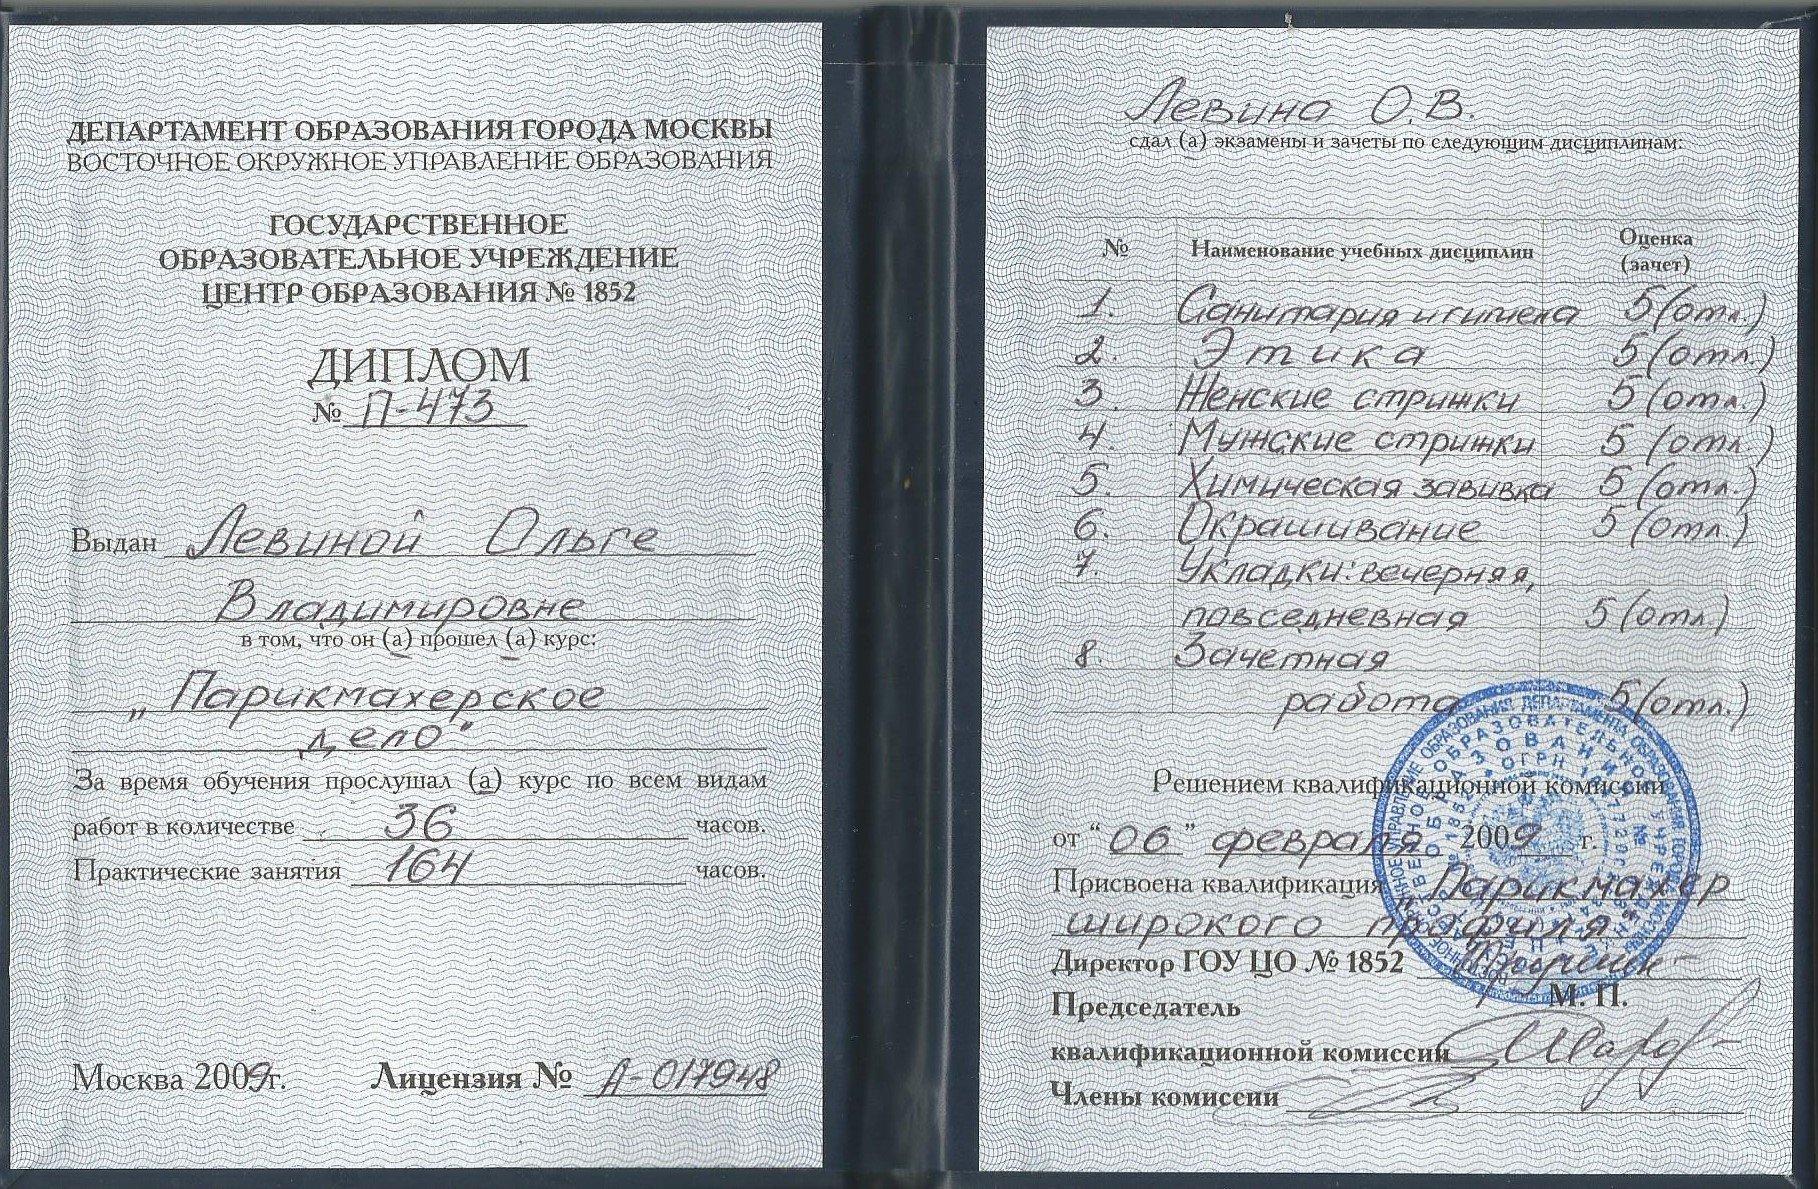 ДЕПАРТАМЕНТ ОБРАЗОВАНИЯ ГОРОДА МОСКВЫ
ВОСТОЧНОЕ ОКРУЖНОЕ УПРАВЛЕНИЕ ОБРАЗОВАНИЯ
ГОСУДАРСТВЕННОЕ
ОБРАЗОВАТЕЛЬНОЕ УЧРЕЖДЕНИЕ
ЦЕНТР ОБРАЗОВАНИЯ № 1852
ДИПЛОМ
№ П-473
Выдан Левиной Ольге
Владимировне
в том, что он (а) прошел (а) курс:
„Парикмахерское
дело"
За время обучения прослушал (а) курс по всем видам
работ в количестве 36 часов.
Практические занятия 164 часов.
Москва 2009г. Лицензия № А-017948
Левина О.В.
сдал (а) экзамены и зачеты по следующим дисциплинам:
№ Наименование учебных дисциплин Оценка (зачет)
1. Санитария и гигиена 5 (отл.)
2. Этика 5 (отл.)
3. Женские стрижки 5 (отл.)
4. Мужские стрижки 5 (отл.)
5. Химическая завивка 5 (отл.)
6. Окрашивание 5 (отл.)
7. Укладки: вечерняя,
повседневная 5 (отл.)
8. Зачетная
работа 5 (отл.)
Решением квалификационной комиссии
от "06" февраля 2009 г.
Присвоена квалификация „Парикмахер
широкого профиля"
Директор ГОУ ЦО № 1852
М. П.
Председатель
квалификационной комиссии
Члены комиссии